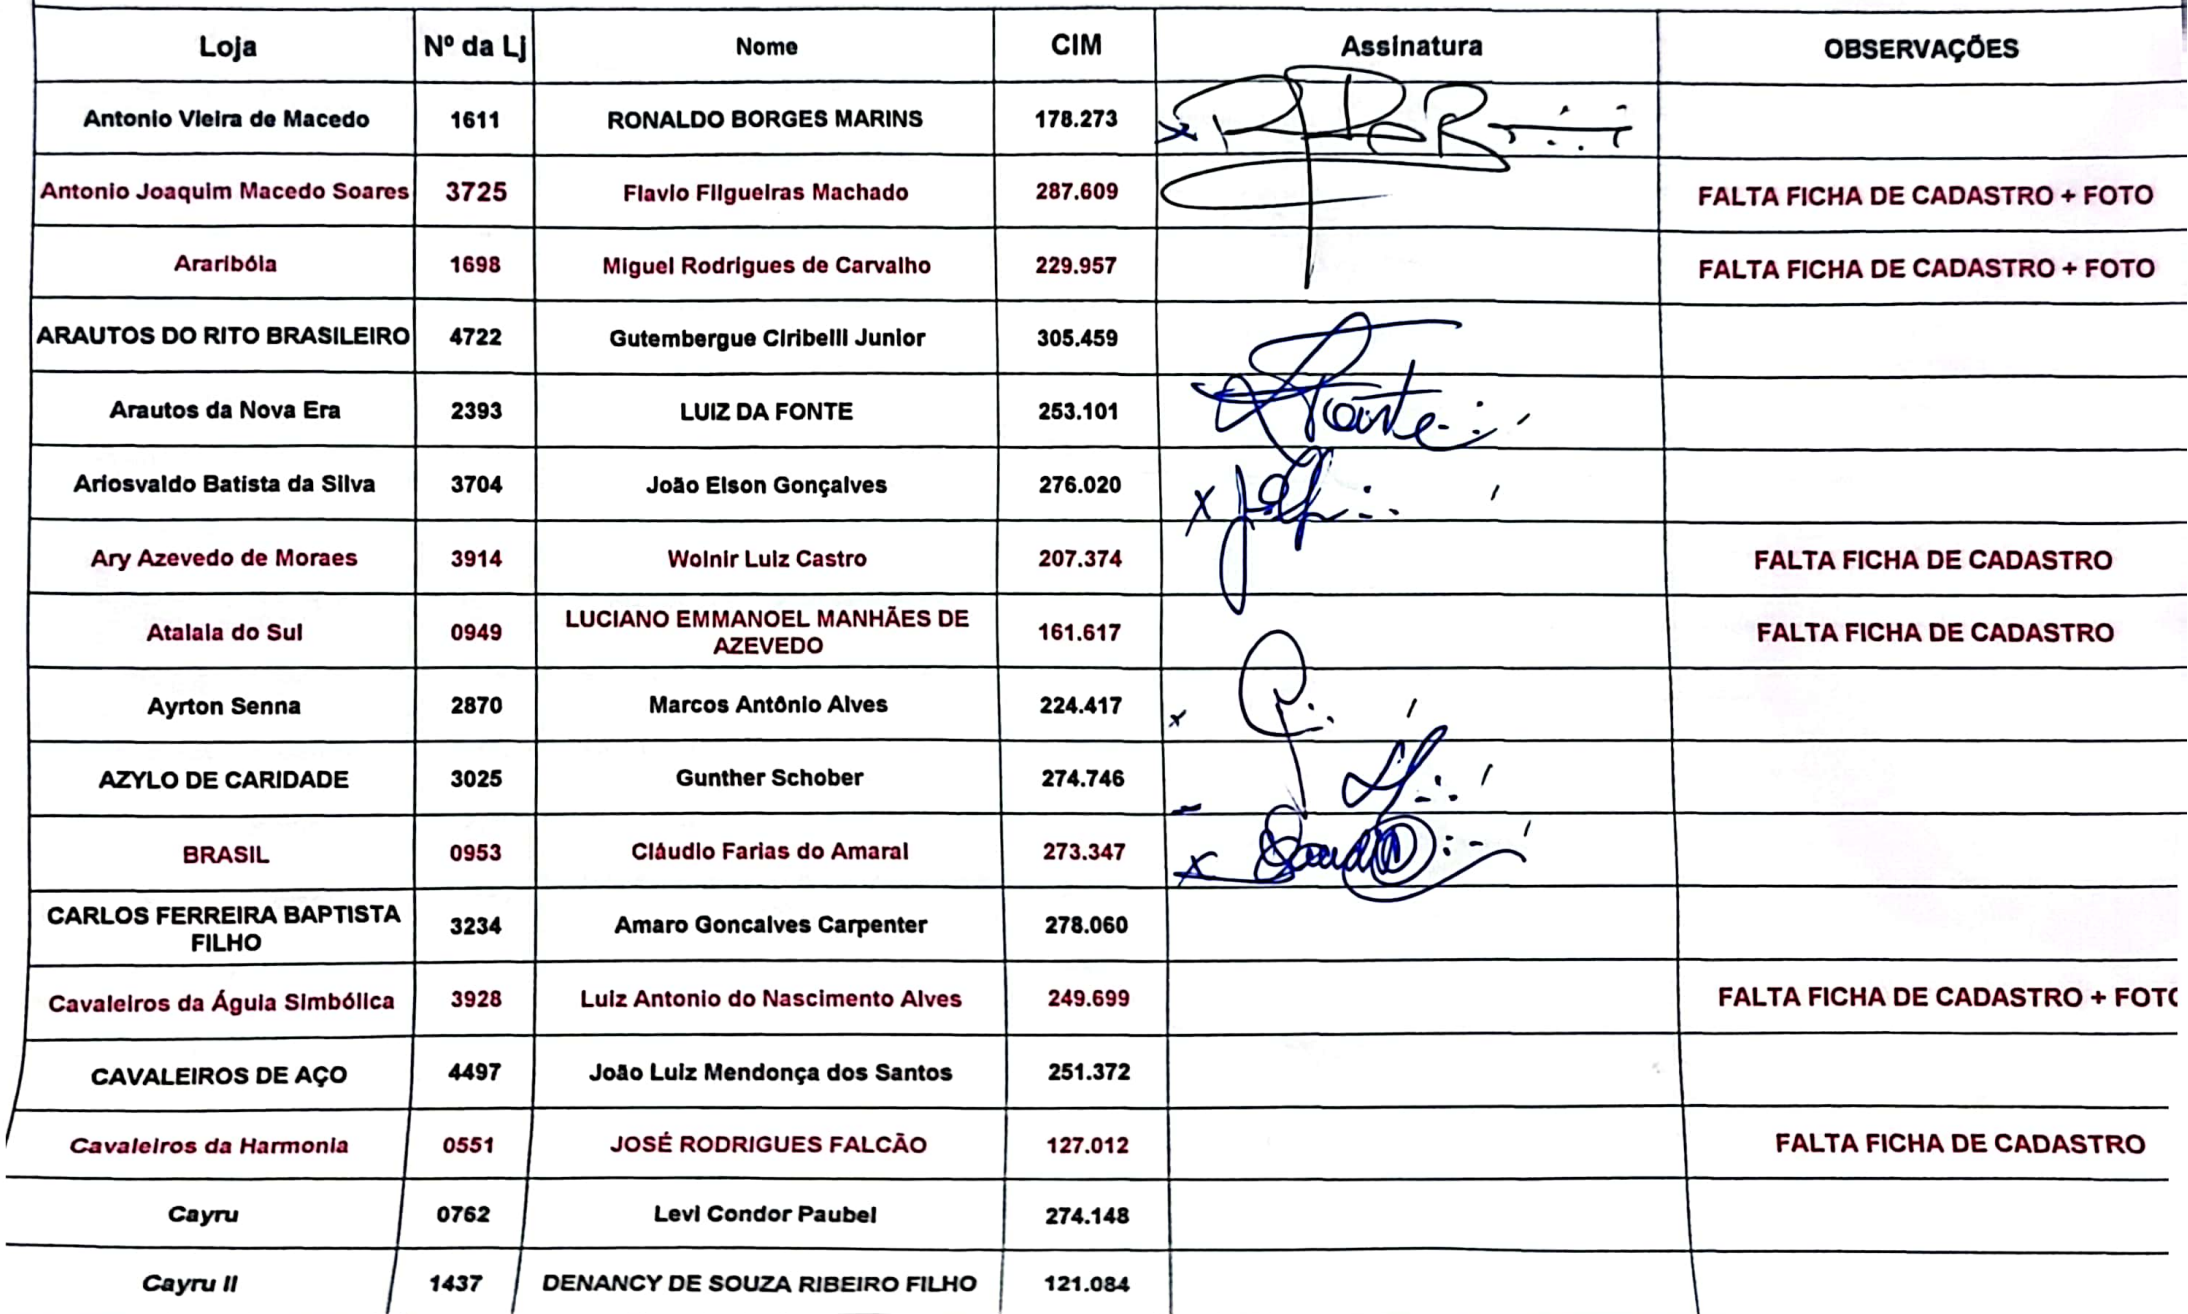 Loja Nº da Lj Nome CIM Assinatura OBSERVAÇÕES
Antonio Vieira de Macedo 1611 RONALDO BORGES MARINS 178.273
Antonio Joaquim Macedo Soares 3725 Flavio Filgueiras Machado 287.609 FALTA FICHA DE CADASTRO + FOTO
Araribóia 1698 Miguel Rodrigues de Carvalho 229.957 FALTA FICHA DE CADASTRO + FOTO
ARAUTOS DO RITO BRASILEIRO 4722 Gutembergue Ciribelli Junior 305.459
Arautos da Nova Era 2393 LUIZ DA FONTE 253.101 Fonte
Ariosvaldo Batista da Silva 3704 João Elson Gonçalves 276.020 x
Ary Azevedo de Moraes 3914 Wolnir Luiz Castro 207.374 FALTA FICHA DE CADASTRO
Atalaia do Sul 0949 LUCIANO EMMANOEL MANHÃES DE
AZEVEDO 161.617 FALTA FICHA DE CADASTRO
Ayrton Senna 2870 Marcos Antônio Alves 224.417 x
AZYLO DE CARIDADE 3025 Gunther Schober 274.746
BRASIL 0953 Cláudio Farias do Amaral 273.347 x
CARLOS FERREIRA BAPTISTA
FILHO 3234 Amaro Goncalves Carpenter 278.060
Cavaleiros da Águia Simbólica 3928 Luiz Antonio do Nascimento Alves 249.699 FALTA FICHA DE CADASTRO + FOTO
CAVALEIROS DE AÇO 4497 João Luiz Mendonça dos Santos 251.372
Cavaleiros da Harmonia 0551 JOSÉ RODRIGUES FALCÃO 127.012 FALTA FICHA DE CADASTRO
Cayru 0762 Levi Condor Paubel 274.148
Cayru II 1437 DENANCY DE SOUZA RIBEIRO FILHO 121.084